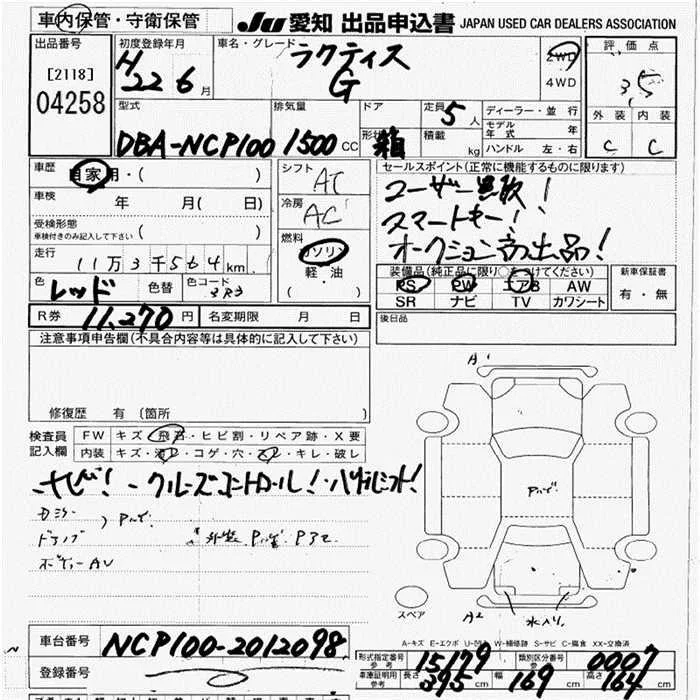 車内保管・守衛保管
JU 愛知 出品申込書 JAPAN USED CAR DEALERS ASSOCIATION
出品番号
[2118]
04258
初度登録年月
H 22 6 月
車名・グレード
ラクティス
G
2WD
4WD
評価点
3.5
外装 内装
C C
型式
DBA-NCP100
排気量
1500 CC
ドア
形状 箱
定員 5 人
積載 kg
ディーラー・並行
モデル年式 年
ハンドル 左・右
車歴 自家用・( )
車検 年 月( 日)
受検形態
車検付きのみ記入して下さい ( )
走行
11万3千564km
色 レッド 色替 色コード 3R3
シフト AT
冷房 AC
燃料
ガソリン
軽・油
( ・ )
セールスポイント(正常に機能するものに限ります)
ユーザー買取!
スマートキー!
オークション初出品!
装備品(純正品に限り○をつけてください)
PS PW エアB AW
SR ナビ TV カワシート
新車保証書
有・無
R券 11,270 円 名変期限 月 日
後日品
注意事項申告欄(不具合内容等は具体的に記入して下さい)
修復歴 有 (箇所 )
検査員記入欄
FW キズ・飛石・ヒビ割・リペア跡・X要
内装 キズ・汚レ・コゲ・穴・スレ・キレ・破レ
ナビ!-クルーズコントロール!
A1
A2
スペア
A-キズ E-エクボ U-凹ミ W-補修跡 S-サビ C-腐食 XX-交換済
車台番号 NCP100-2012098
登録番号
形式指定番号 参考 15179
類別区分番号 参考 0007
車庫証明用 参考 長さ 395 cm 幅 169 cm 高さ 164 cm